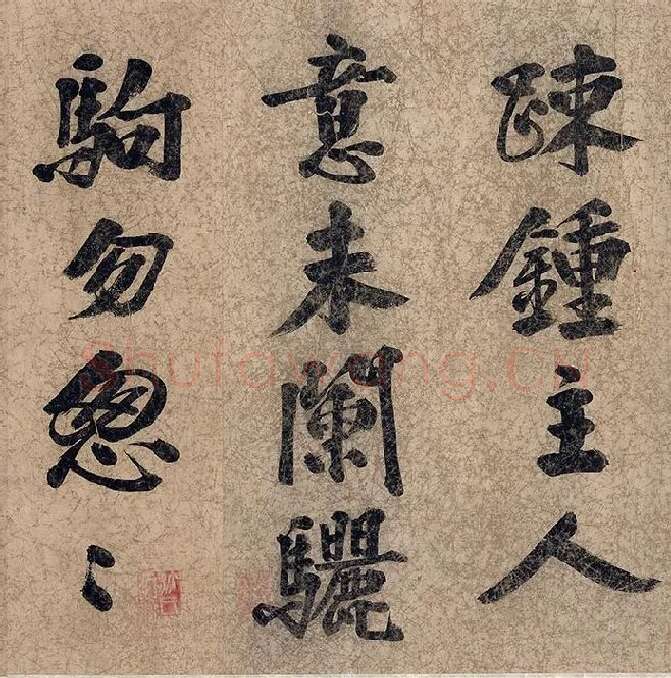 踈鍾主人
意未闌驪
駒勿怱〻
shufawang.cn